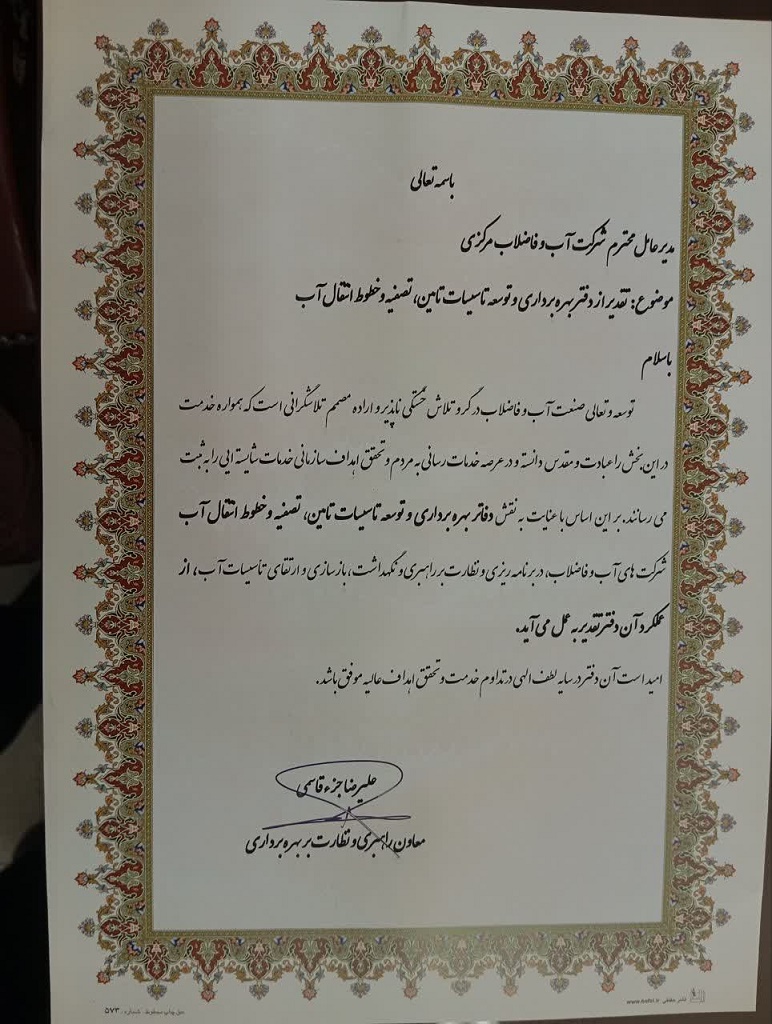 باسمه تعالی
مدیر عامل محترم شرکت آب و فاضلاب مرکزی
موضوع: تقدیر از دفتر بهره برداری و توسعه تاسیسات تامین، تصفیه و خطوط انتقال آب
باسلام
توسعه و تعالی صنعت آب و فاضلاب در گرو تلاش خستگی ناپذیر و اراده مصمم تلاشگرانی است که همواره خدمت
در این بخش را عبادت و مقدس دانسته و در عرصه خدمات رسانی به مردم و تحقق اهداف سازمانی خدمات شایسته ایی را به ثبت
می رسانند. بر این اساس با عنایت به نقش دفاتر بهره برداری و توسعه تاسیسات تامین، تصفیه و خطوط انتقال آب
شرکت های آب و فاضلاب، در برنامه ریزی و نظارت بر راهبری و نگهداشت، بازسازی و ارتقای تاسیسات آب، از
عملکرد آن دفتر تقدیر به عمل می آید.
امید است آن دفتر در سایه لطف الهی در تداوم خدمت و تحقق اهداف عالیه موفق باشد.
علیرضا جزء قاسمی
معاون راهبری و نظارت بر بهره برداری
حق چاپ محفوظ. شماره: ۵۷۳